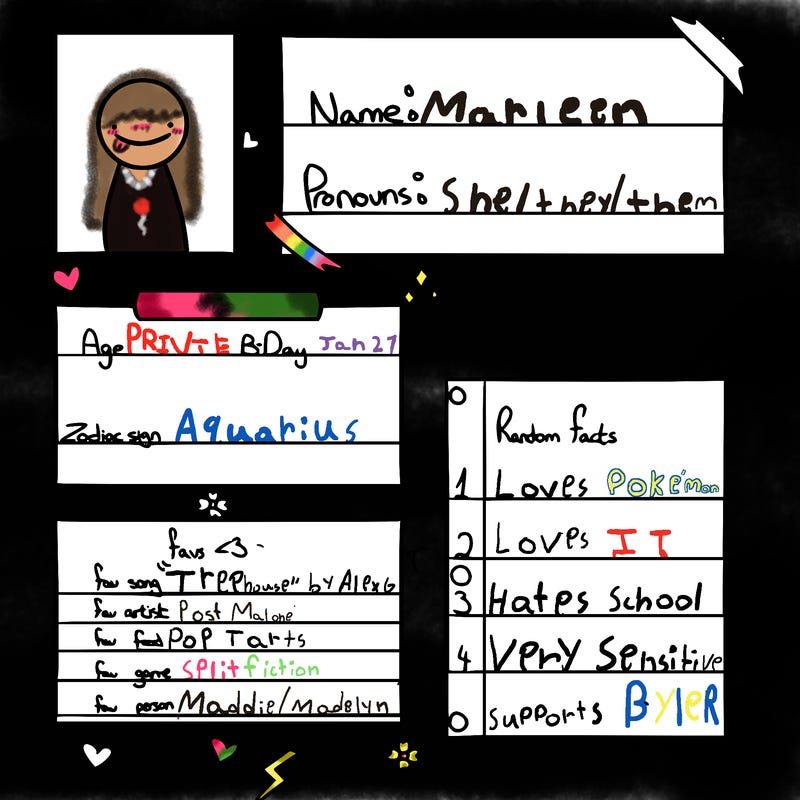 Name: Marleen
Pronouns: She/they/them
Age PRIVTE B-Day Jan 27
Zodiac sign Aquarius
favs <3
fav song "Treehouse" by Alex G
fav artist Post Malone
fav food Pop Tarts
fav game split fiction
fav person Maddie/Madelyn
Random facts
1 Loves Pokémon
2 Loves IT
3 Hates School
4 Very Sensitive
supports BYleR